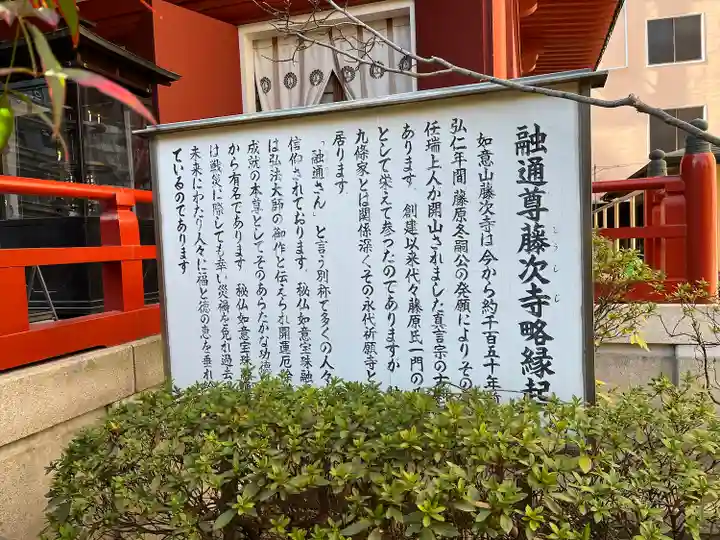 融通尊藤次寺略縁起
とうじじ
如意山藤次寺は今から約千百五十年
弘仁年間藤原冬嗣公の発願によりその
任瑞上人が開山されました真言宗の古
あります 創建以来代々藤原氏一門の
として栄えて参つたのでありますが
九條家とは関係深くその永代祈願寺と
居ります
「融通さん」と言う別称で多くの人々
信仰されております 秘仏如意宝珠融
は弘法大師の御作と伝えられ開運厄除
成就の本尊としてそのあらたかな功徳
から有名であります 秘仏如意宝珠
は戦災に際しても幸い災禍を免れ過去
未来にわたり人々に福と徳の恵を垂れ
ているのであります